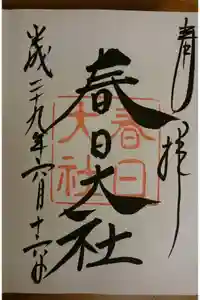 奉拝
春日大社
春日大社
平成二十九年六月十六日